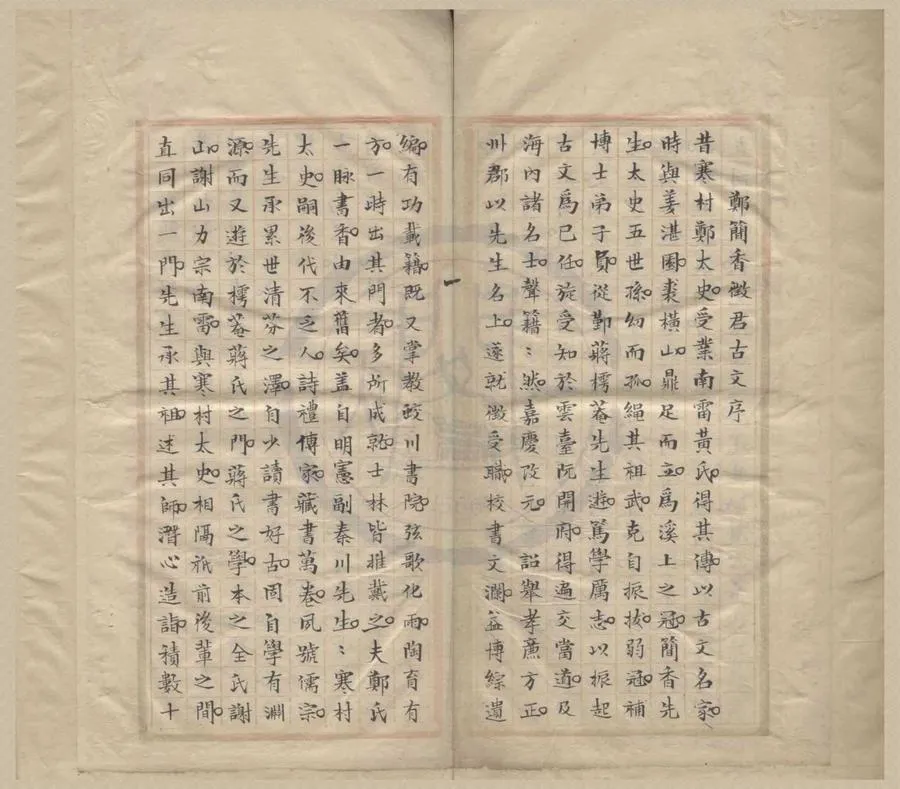 鄭簡香徵君古文序
昔寒村鄭太史受業南雷黃氏得其傳以古文名家
時與姜湛園裘橫山鼎足而立爲溪上之冠簡香先
生太史五世孫幼而孤繩其祖武克自振拔弱冠補
博士弟子員從鄞蔣樗菴先生遊篤學厲志以振起
古文爲已任旋受知於雲臺阮開府得遍交當道及
海內諸名士聲籍〻然嘉慶改元 詔舉孝廉方正
州郡以先生名上遂就徵受職校書文瀾益博綜遺
編有功載籍既又掌教蛟川書院弦歌化雨陶育有
方一時出其門者多所成就士林皆推戴之夫鄭氏
一脉書香由來舊矣盖自明憲副秦川先生〻寒村
太史嗣後代不乏人詩禮傳家藏書萬卷夙號儒宗
先生承累世清芬之澤自少讀書好古固自學有淵
源而又遊於樗菴蔣氏之門蔣氏之學本之全氏謝
山謝山力宗南雷與寒村太史相隔祇前後輩之間
直同出一門先生承其祖述其師潛心造詣積數十